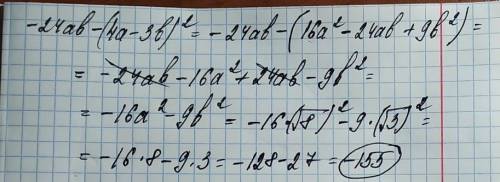 -24ab-(4a-3b)²=-24ab-(16a²-24ab+9b²)=
=-24ab-16a²+24ab-9b²=
=-16a²-9b²=-16·(√8)²-9·(√3)²=
=-16·8-9·3=-128-27=-155